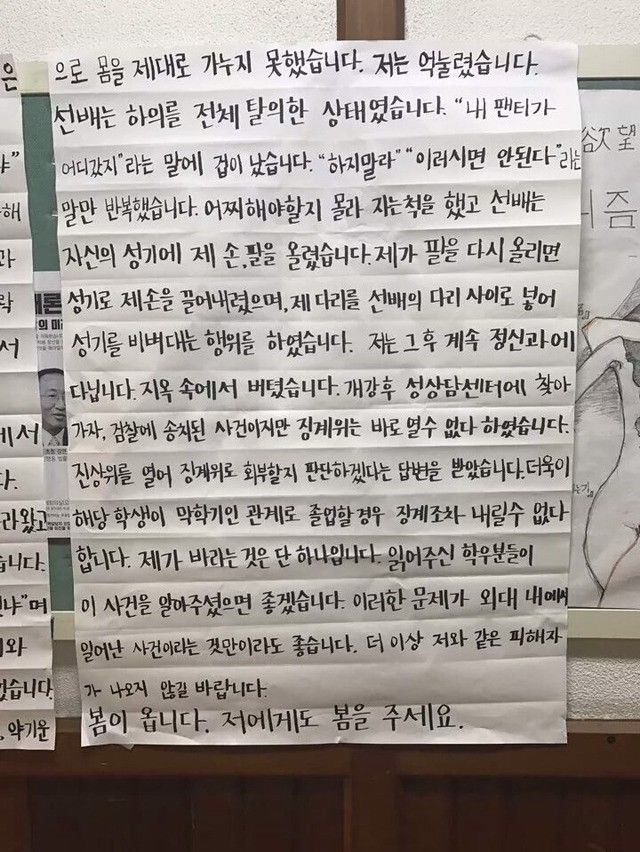 으로 몸을 제대로 가누지 못했습니다. 저는 억눌렸습니다.
선배는 하의를 전체 탈의한 상태였습니다. "내 팬티가
어디갔지"라는 말에 겁이 났습니다. "하지말라" "이러시면 안된다"라는
말만 반복했습니다. 어찌해야할지 몰라 자는척을 했고 선배는
자신의 성기에 제 손, 팔을 올렸습니다. 제가 팔을 다시 올리면
성기로 제손을 끌어내렸으며, 제 다리를 선배의 다리 사이로 넣어
성기를 비벼대는 행위를 하였습니다. 저는 그후 계속 정신과에
다닙니다. 지옥 속에서 버텼습니다. 개강후 성상담센터에 찾아
가자, 검찰에 송치된 사건이지만 징계위는 바로 열수 없다 하였습니다.
진상위를 열어 징계위로 회부할지 판단하겠다는 답변을 받았습니다. 더욱이
해당 학생이 막학기인 관계로 졸업할 경우 징계조차 내릴수 없다
합니다. 제가 바라는것은 단 하나입니다. 읽어주신 학우분들이
이 사건을 알아주셨으면 좋겠습니다. 이러한 문제가 외대 내에서
일어난 사건이라는 것만이라도 좋습니다. 더 이상 저와 같은 피해자
가 나오지 않길 바랍니다.
봄이 옵니다. 저에게도 봄을 주세요.
은
냐"
해
과
락
서
에서
다.
라왔고
습니다.
냐"며
외와
없습니다
약기운
의 미
欲望
즘